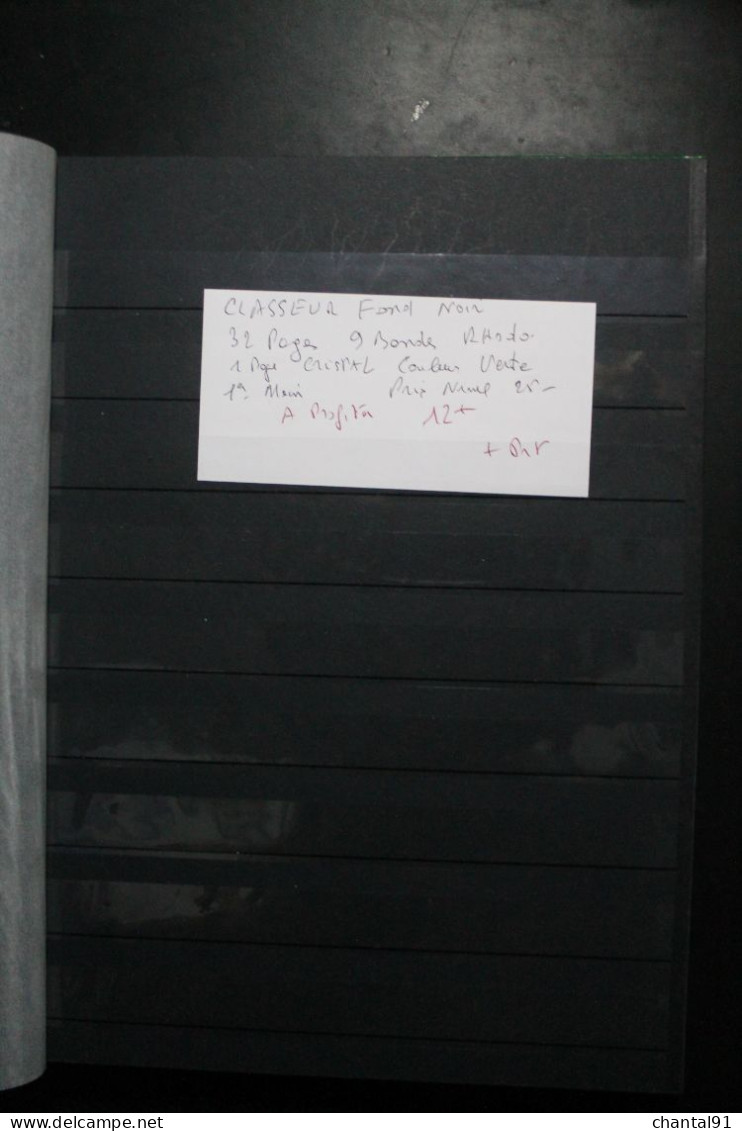 CLASSEUR Fond Noir
32 Pages 9 Bandes
1 Page CRISTAL Couleur Verte
1ère Main Prix Neuf 25-
A Profiter 12+
+ Port
DELCAMPE.NET
chantal91